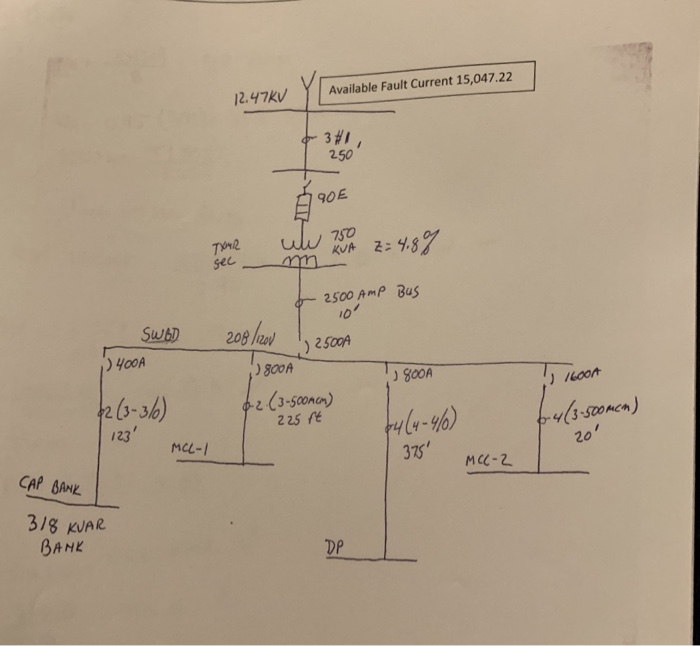 Available Fault Current 15,047.22
12.47KV
3#1
250'
90E
750
KVA Z=4.8%
TXMR
SEC
2500 AMP BUS
10'
SWBD 208/120V
2500A
400A
800A
800A
1600A
2(3-3/0)
123'
2(3-500MCM)
225 ft
4(4-4/0)
375'
4(3-500MCM)
20'
MCC-1
MCC-2
CAP BANK
318 KVAR
BANK
DP